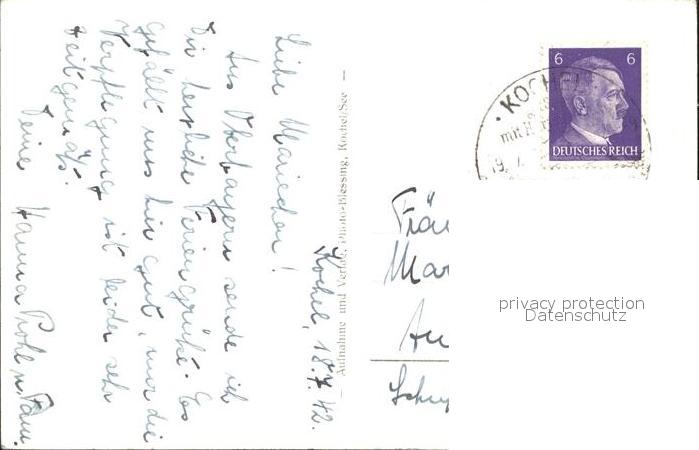 Kochel, 18.7.42.
Liebe Mariechen!
Aus Oberbayern sende ich
Dir herzliche Feriengrüße. Es
gefällt uns hier gut, nur die
Verpflegung ist leider sehr
zeitgemäß.
Deine Hanna u. Fam.
Aufnahme und Verlag, Photo-Blessing, Kochel/See
6 6
DEUTSCHES REICH
KOCH
19. 7.
Fräu
Mar
Au
privacy protection
Datenschutz